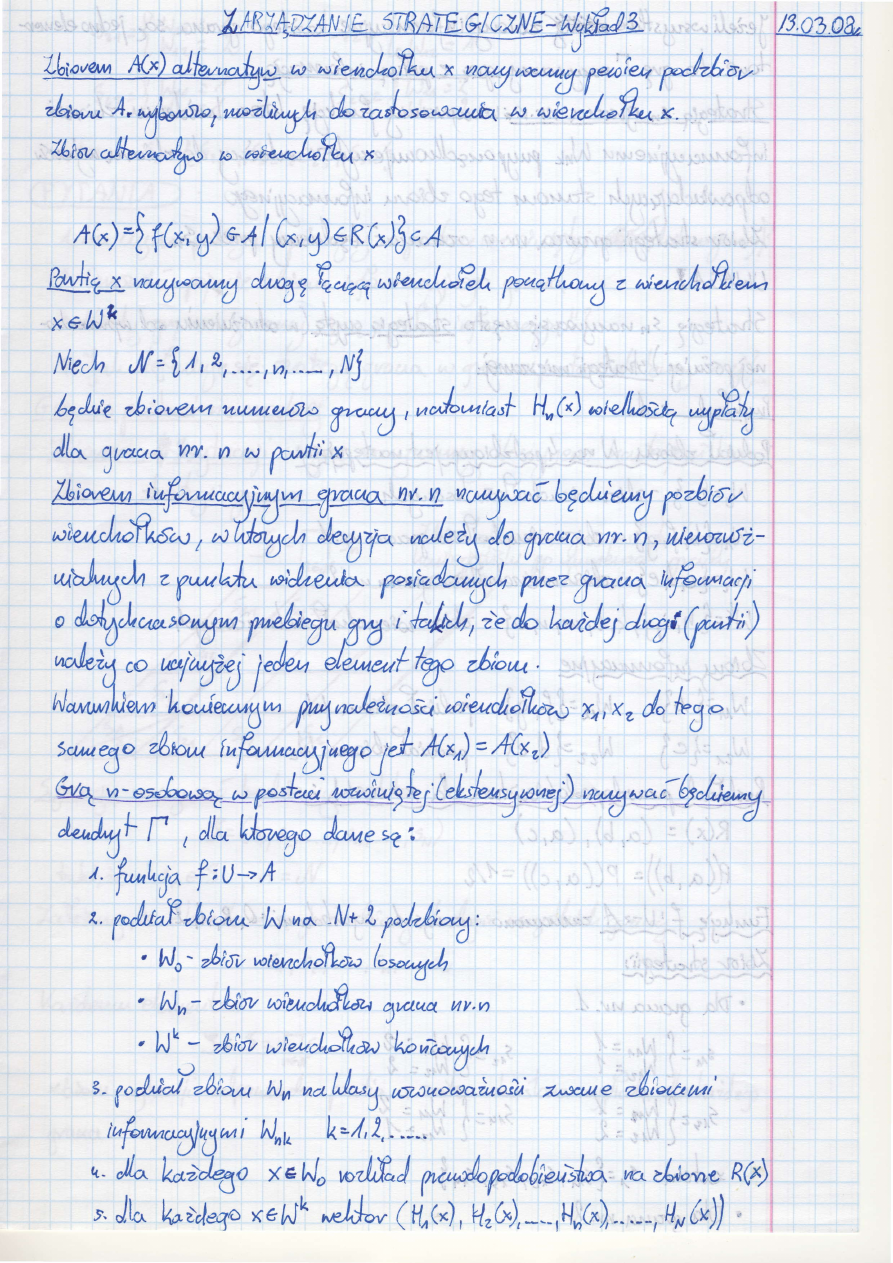 ZARZĄDZANIE STRATEGICZNE - Wykład 3 13.03.08r.
Zbiorem A(x) alternatyw w wierzchołku x nazywamy pewien podzbiór
zbioru A. wyborów, możliwych do zastosowania w wierzchołku x.
Zbiór alternatyw w wierzchołku x
A(x) = { f(x,y) ∈ A / (x,y) ∈ R(x)} ⊂ A
Partią x nazywamy drogę łączącą wierzchołek początkowy z wierzchołkiem
x ∈ Wᵏ
Niech N = {1, 2, ...., n, ...., N}
będzie zbiorem numerów graczy, natomiast Hₙ(x) wielkością wypłaty
dla gracza nr. n w partii x
Zbiorem informacyjnym gracza nr. n nazywać będziemy pozbiór
wierzchołków, w których decyzja należy do gracza nr. n, nierozróż-
nialnych z punktu widzenia posiadanych przez gracza informacji
o dotychczasowym przebiegu gry i takich, że do każdej drogi (partii)
należy co najwyżej jeden element tego zbioru.
Warunkiem koniecznym przynależności wierzchołków x₁, x₂ do tego
samego zbioru informacyjnego jet A(x₁) = A(x₂)
Grą n-osobową w postaci rozwiniętej (ekstensywnej) nazywać będziemy
dendryt Γ, dla którego dane są:
1. funkcja f: U → A
2. podział zbioru W na N+2 podzbiory:
• W₀ - zbiór wierzchołków losowych
• Wₙ - zbiór wierzchołków gracza nr. n
• Wᵏ - zbiór wierzchołków końcowych
3. podział zbioru Wₙ na klasy równoważności zwane zbiorami
informacyjnymi Wₙₖ k = 1, 2, ......
4. dla każdego x ∈ W₀ rozkład prawdopodobieństwa na zbiorze R(x)
5. dla każdego x ∈ Wᵏ wektor (H₁(x), H₂(x), ...., Hₙ(x), ......, H_N(x))